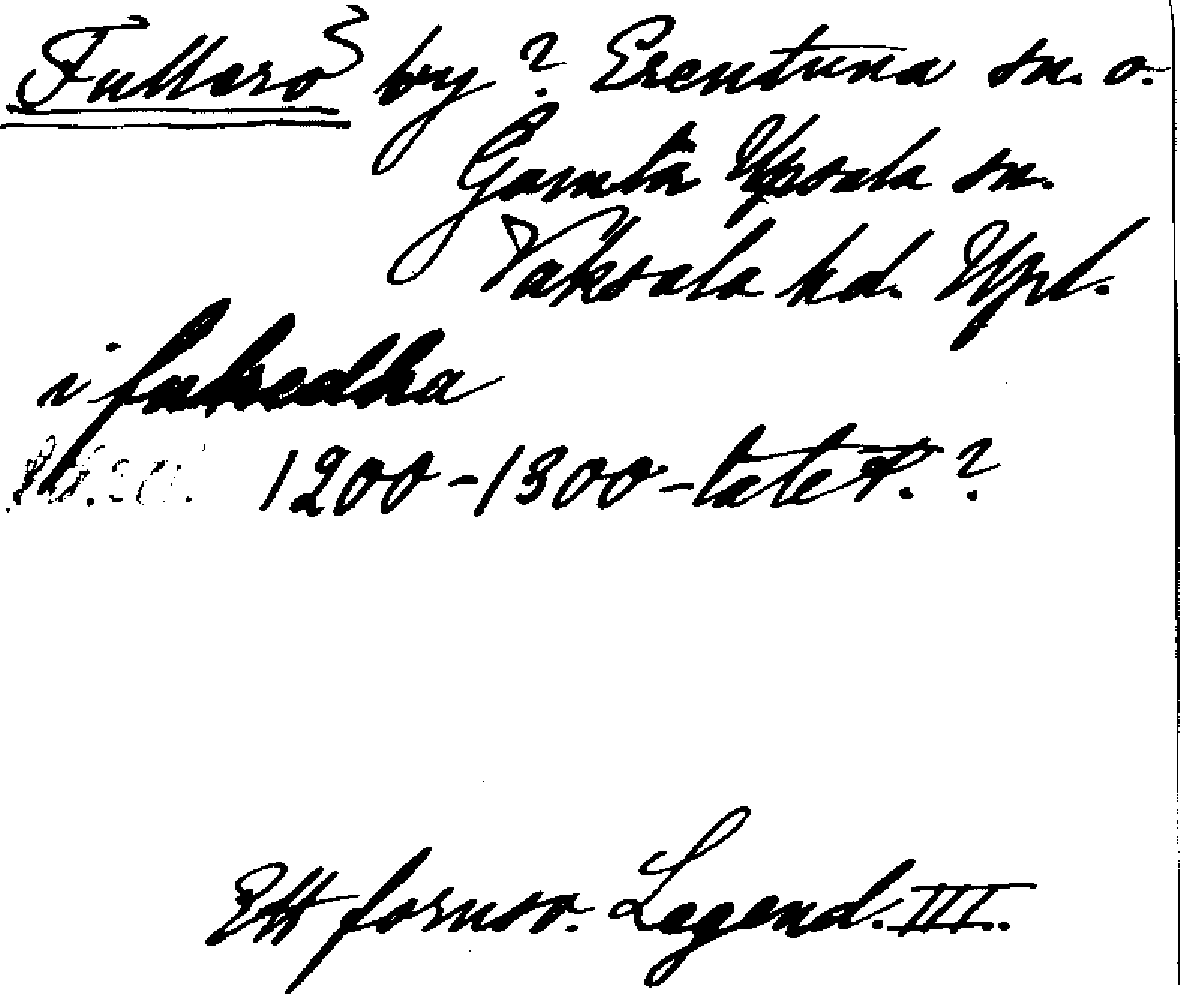 Fullerö by? Ärentuna sn. o.
Gamla Upsala sn.
Vaksala hd. Upl.
i fulredha
1200-1300-talet.?
Ett fornsv. Legend. III.